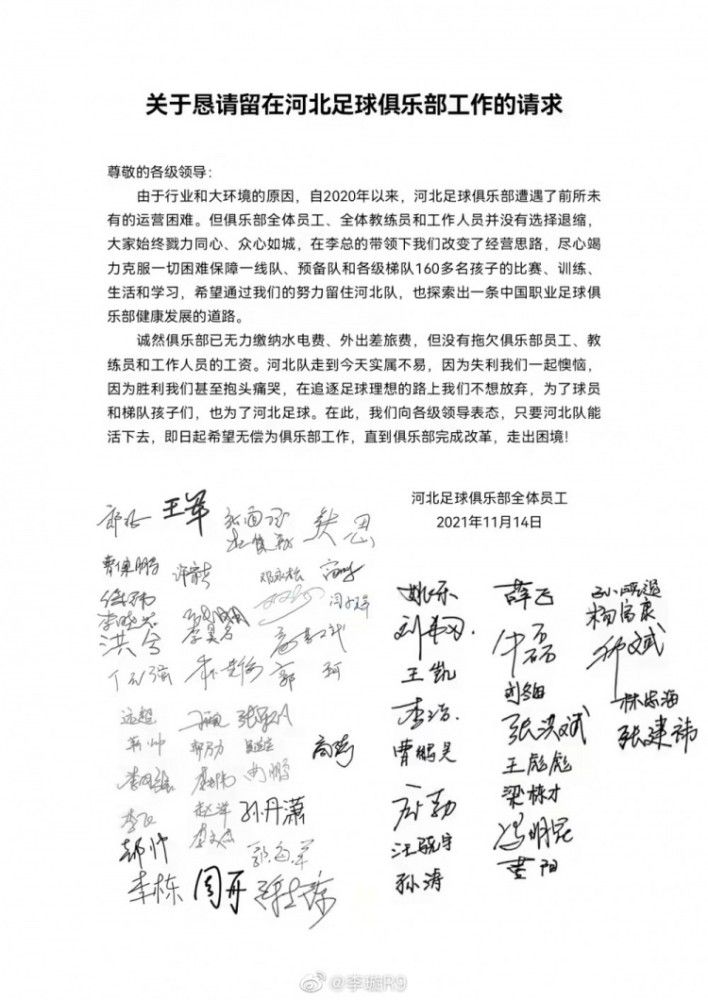 关于恳请留在河北足球俱乐部工作的请求
尊敬的各级领导：
由于行业和大环境的原因，自2020年以来，河北足球俱乐部遭遇了前所未
有的运营困难。但俱乐部全体员工、全体教练员和工作人员并没有选择退缩，
大家始终戮力同心、众心如城，在李总的带领下我们改变了经营思路，尽心竭
力克服一切困难保障一线队、预备队和各级梯队160多名孩子的比赛、训练、
生活和学习，希望通过我们的努力留住河北队，也探索出一条中国职业足球俱
乐部健康发展的道路。
诚然俱乐部已无力缴纳水电费、外出差旅费，但没有拖欠俱乐部员工、教
练员和工作人员的工资。河北队走到今天实属不易，因为失利我们一起懊恼，
因为胜利我们甚至抱头痛哭，在追逐足球理想的路上我们不想放弃，为了球员
和梯队孩子们，也为了河北足球。在此，我们向各级领导表态，只要河北队能
活下去，即日起希望无偿为俱乐部工作，直到俱乐部完成改革，走出困境！
河北足球俱乐部全体员工
2021年11月14日
王军
姚乐
薛飞
杨富康
王凯
李浩
林志海
张洪斌
张建祎
曹鹏昊
王彪彪
梁栋才
孙丹潇
冯明昆
汪晓宇
黄阳
孙涛
李栋
周开
@李璇R9